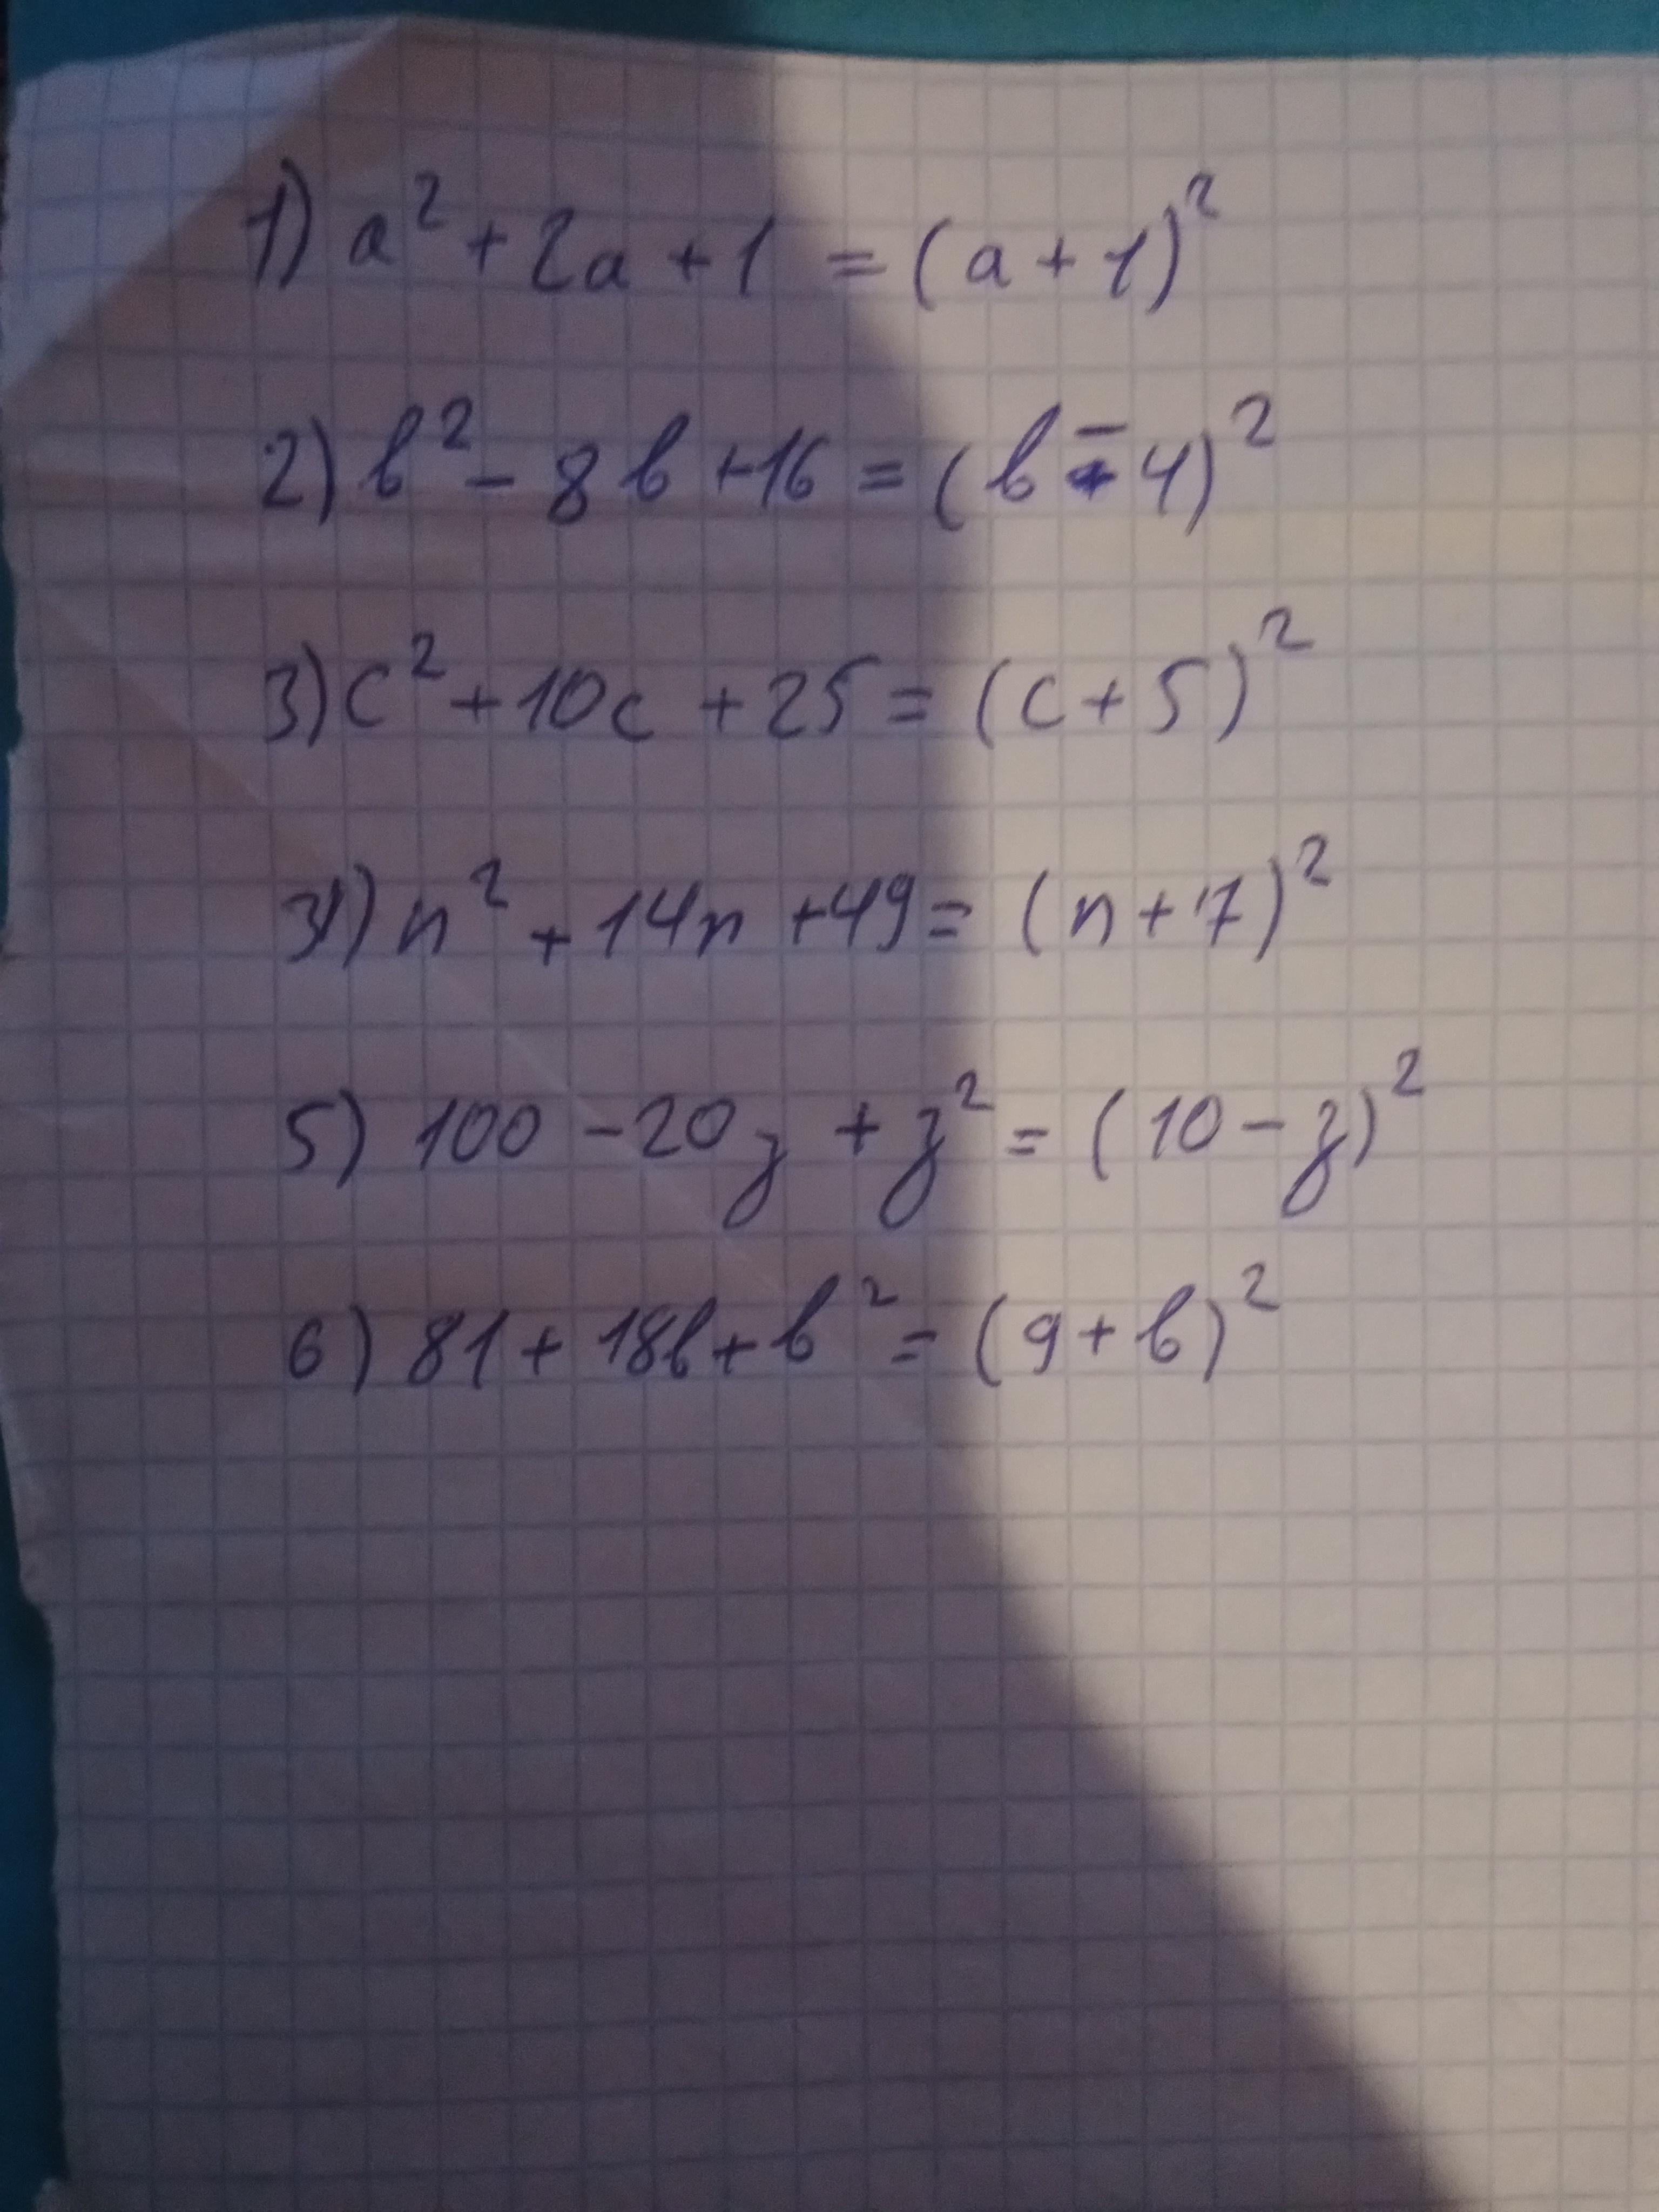 1) a² + 2a + 1 = (a + 1)²
2) b² - 8b + 16 = (b - 4)²
3) c² + 10c + 25 = (c + 5)²
4) n² + 14n + 49 = (n + 7)²
5) 100 - 20z + z² = (10 - z)²
6) 81 + 18b + b² = (9 + b)²